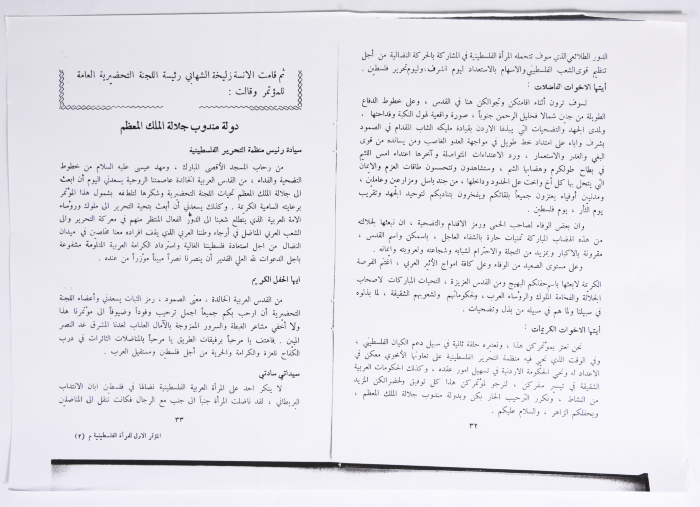 الدور الطلائعي الذي سوف تتحمله المرأة الفلسطينية في المشاركة بالحركة النضالية من أجل
تنظيم قوى الشعب الفلسطيني والاسهام بالاستعداد ليوم الشرف، وليوم تحرير فلسطين .
أيتها الاخوات الفاضلات :
لسوف ترون أثناء اقامتكن وتجوالكن هنا في القدس ، وعلى خطوط الدفاع
الطويلة من جنين شمالا فخليل الرحمن جنوباً ، صورة واقعية لهول النكبة وفداحتها ،
ولمدى الجهد والتضحيات التي يبذلها الاردن بقيادة مليكه الشاب المقدام في الصمود
بشرف واباء على امتداد خط طويل في مواجهة العدو الغاصب ومن يسانده من قوى
البغي والغدر والاستعمار ، ورد الاعتداءات المتواصلة وآخرها اعتداء امس الاثيم
في بطاح طولكرم وهضابها الشم ، وستشاهدون وتتحسسون طاقات العزم والايمان
التي يتحلى بها كل أخ وأخت على الحدود وداخلها ، من جند باسل ومزارعين وعاملين ،
ومدنيين أوفياء يعتزون جميعاً بلقائكم ويفخرون بتناديكم لتوحيد الجهد وتقريب
يوم الثأر ، يوم فلسطين .
وان بعض الوفاء لصاحب الحمى ورمز الاقدام والتضحية ، ان نبعثها لجلالته
من هذه الهضاب المباركة تمنيات حارة بالشفاء العاجل ، باسمكن واسم القدس ،
مقرونة بالاكبار وبمزيد من التجلة والاحترام لشبابه وشجاعته وعروبته وايمانه .
وعلى مستوى الصعيد من الوفاء وعلى كافة امواج الأثير العربي ، أغتنم الفرصة
الكريمة لابعثها باسم حفلكم البهيج ومن القدس العزيزة ، التحيات المباركات لاصحاب
الجلالة والفخامة الملوك والرؤساء العرب ، ولحكوماتهم ولشعوبهم الشقيقة ، لما بذلوه
في سبيلنا ولما هم في سبيله من بذل وتضحيات .
أيتها الاخوات الكريمات :
نحن نعتز بمؤتمركن هذا ، ونعتبره حلقة ثانية في سبيل دعم الكيان الفلسطيني ،
وفي الوقت الذي نحيي فيه منظمة التحرير الفلسطينية على تعاونها الأخوي معكن في
الاعداد له ونحيي الحكومة الاردنية في تسهيل امور عقده ، وكذلك الحكومات العربية
الشقيقة في تيسير سفركن ، لنرجو لمؤتمركن هذا كل توفيق ولحضراتكن المزيد
من النشاط ، ونكرر الترحيب الحار بكن وبدولة مندوب جلالة الملك المعظم ،
وبحفلكم الزاهر ، والسلام عليكم .
٣٢
ثم قامت الآنسة زليخة الشهابي رئيسة اللجنة التحضيرية العامة
للمؤتمر وقالت :
دولة مندوب جلالة الملك المعظم
سيادة رئيس منظمة التحرير الفلسطينية
من رحاب المسجد الأقصى المبارك ، ومهد عيسى عليه السلام من خطوط
التضحية والفداء ، من القدس العربية الخالدة عاصمتنا الروحية يسعدني اليوم أن ابعث
الى جلالة الملك المعظم تحيات اللجنة التحضيرية وشكرها لتلطفه بشمول هذا المؤتمر
برعايته السامية الكريمة . وكذلك يسعدني أن أبعث بتحية التحرير الى ملوك ورؤساء
الامة العربية الذي يتطلع شعبنا الى الدور الفعال المنتظر منهم في معركة التحرير والى
الشعب العربي المناضل في أرجاء وطننا العربي الذي يقف افراده معنا مخلصين في ميدان
النضال من اجل استعادة فلسطيننا الغالية واسترداد الكرامة العربية المثلومة مشفوعة
باجل الدعوات لله العلي القدير أن ينصرنا نصراً مبيناً مؤزراً من عنده .
ايها الحفل الكريم
من القدس العربية الخالدة ، معنى الصمود ، رمز الثبات يسعدني وأعضاء اللجنة
التحضيرية أن ارحب بكم جميعاً اجمل ترحيب وفوداً وضيوفاً الى مؤتمرنا هذا
ولا أخفي مشاعر الغبطة والسرور الممزوجة بالآمال العذاب لغدنا المشرق غد النصر
المبين . فاهتف يا مرحباً برفيقات الطريق يا مرحباً بالمناضلات الثائرات في درب
الكفاح للعزة والكرامة والحرية من أجل فلسطين ومستقبل العرب .
سيداتي سادتي
لا ينكر احد على المرأة العربية الفلسطينية نضالها في فلسطين ابان الانتداب
البريطاني ، لقد ناضلت المرأة جنباً الى جنب مع الرجال فكانت تنقل الى المناضلين
٣٣
المؤتمر الاول للمرأة الفلسطينية م (٣)